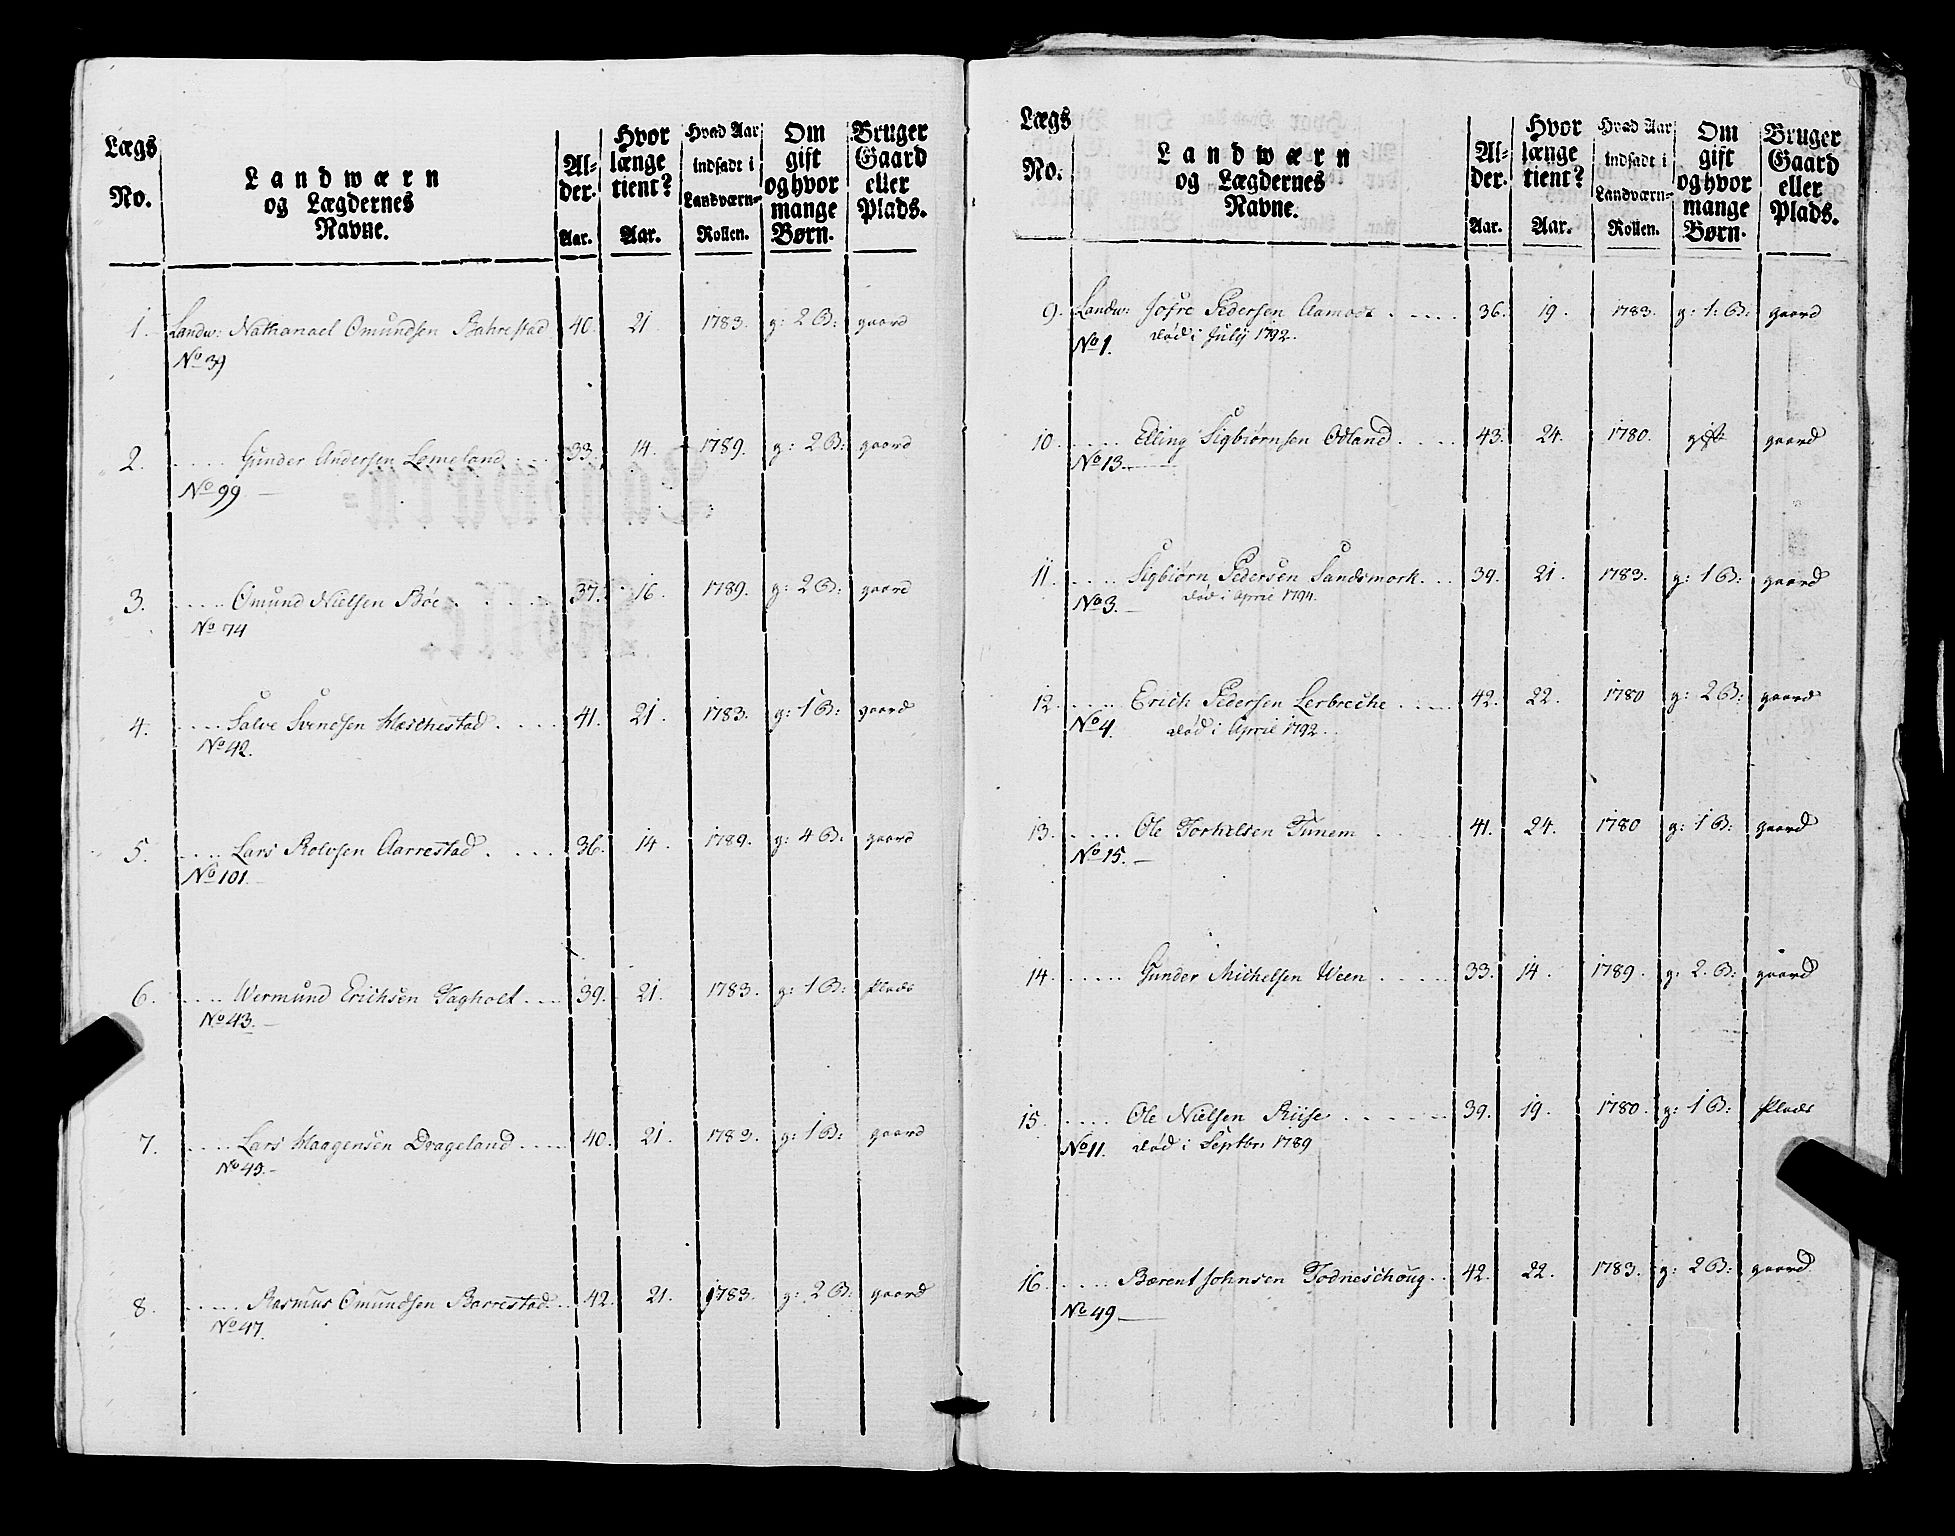 Lægs No. | Landwærn og Lægdernes Navne. | Al-der. Aar. | Hvor længe tient? Aar. | Hvad Aar indsadt i Landværn-Rollen. | Om gift og hvor mange Børn. | Bruger Gaard eller Plads.
1. Landw: Nathanael Omundsen Bahrestad 40. 21. 1783. g: 2 B: gaard
No 39
2. ..... Gunder Andersen Lemeland ... 33. 14. 1789. g: 2 B: gaard
No 99
3. ..... Omund Nielsen Böe ..... 37. 16. 1789. g: 2 B: gaard
No 74
4. ..... Salve Svendsen Hæschestad ..... 41. 21. 1783. g: 1 B: gaard
No 42.
5. ..... Lars Rolvsen Aarrestad ..... 36. 14. 1789. g: 4 B: gaard
No 101.
6. ..... Wermund Erichsen Tagholt .... 39. 21. 1783. g: 1 B: Plads
No 43.
7. ..... Lars Haagensen Drageland ..... 40. 21. 1783. g: 1 B: gaard
No 45.
8. ..... Rasmus Omundsen Barrestad ... 42. 21. 1783. g: 2 B: gaard
No 47.
Lægs No. | Landwærn og Lægdernes Navne. | Al-der. Aar. | Hvor længe tient? Aar. | Hvad Aar indsadt i Landværn-Rollen. | Om gift og hvor mange Børn. | Bruger Gaard eller Plads.
9. Landw: Jofre Pedersen Aamodt ..... 36. 19. 1783. g: 1 B: gaard
No 1. död i July 1792.
10. ..... Elling Sigbiörnsen Odland .... 43. 24. 1780. gift gaard
No 13.
11. ..... Sigbiörn Pedersen Sandsmork ... 39. 21. 1783. g: 1 B: gaard
No 3. död i April 1794.
12. ..... Erich Pedersen Lerbreche .... 42. 22. 1780 g: 2 B: gaard
No 4. död i April 1792.
13. ..... Ole Torkelsen Tunem ..... 41. 24. 1780 g: 1 B: gaard
No 15.
14. ..... Gunder Michelsen Ween ..... 33. 14. 1789. g: 2. B: gaard
15. ..... Ole Nielsen Riise ..... 39. 19. 1780. g: 1 B: Plads
No 11. död i Septbr 1789
16. ..... Bærent Johnsen Todneschoug .. 42. 22. 1783. g: 2 B: gaard
No 49